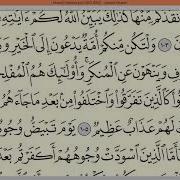 نقَذَكُم مِّنْهَا كَذَٰلِكَ يُبَيِّنُ ٱللَّهُ لَكُمْ ءَايَٰتِهِۦ
١٠٣ وَلْتَكُن مِّنكُمْ أُمَّةٌ يَدْعُونَ إِلَى ٱلْخَيْرِ وَ
فِ وَيَنْهَوْنَ عَنِ ٱلْمُنكَرِ وَأُو۟لَٰٓئِكَ هُمُ ٱلْمُفْلِح
كَٱلَّذِينَ تَفَرَّقُوا۟ وَٱخْتَلَفُوا۟ مِنۢ بَعْدِ مَا جَآءَهُم
لَهُمْ عَذَابٌ عَظِيمٌ ١٠٥ يَوْمَ تَبْيَضُّ وُجُو
مَّا ٱلَّذِينَ ٱسْوَدَّتْ وُجُوهُهُمْ أَكَفَرْتُم بَعْدَ